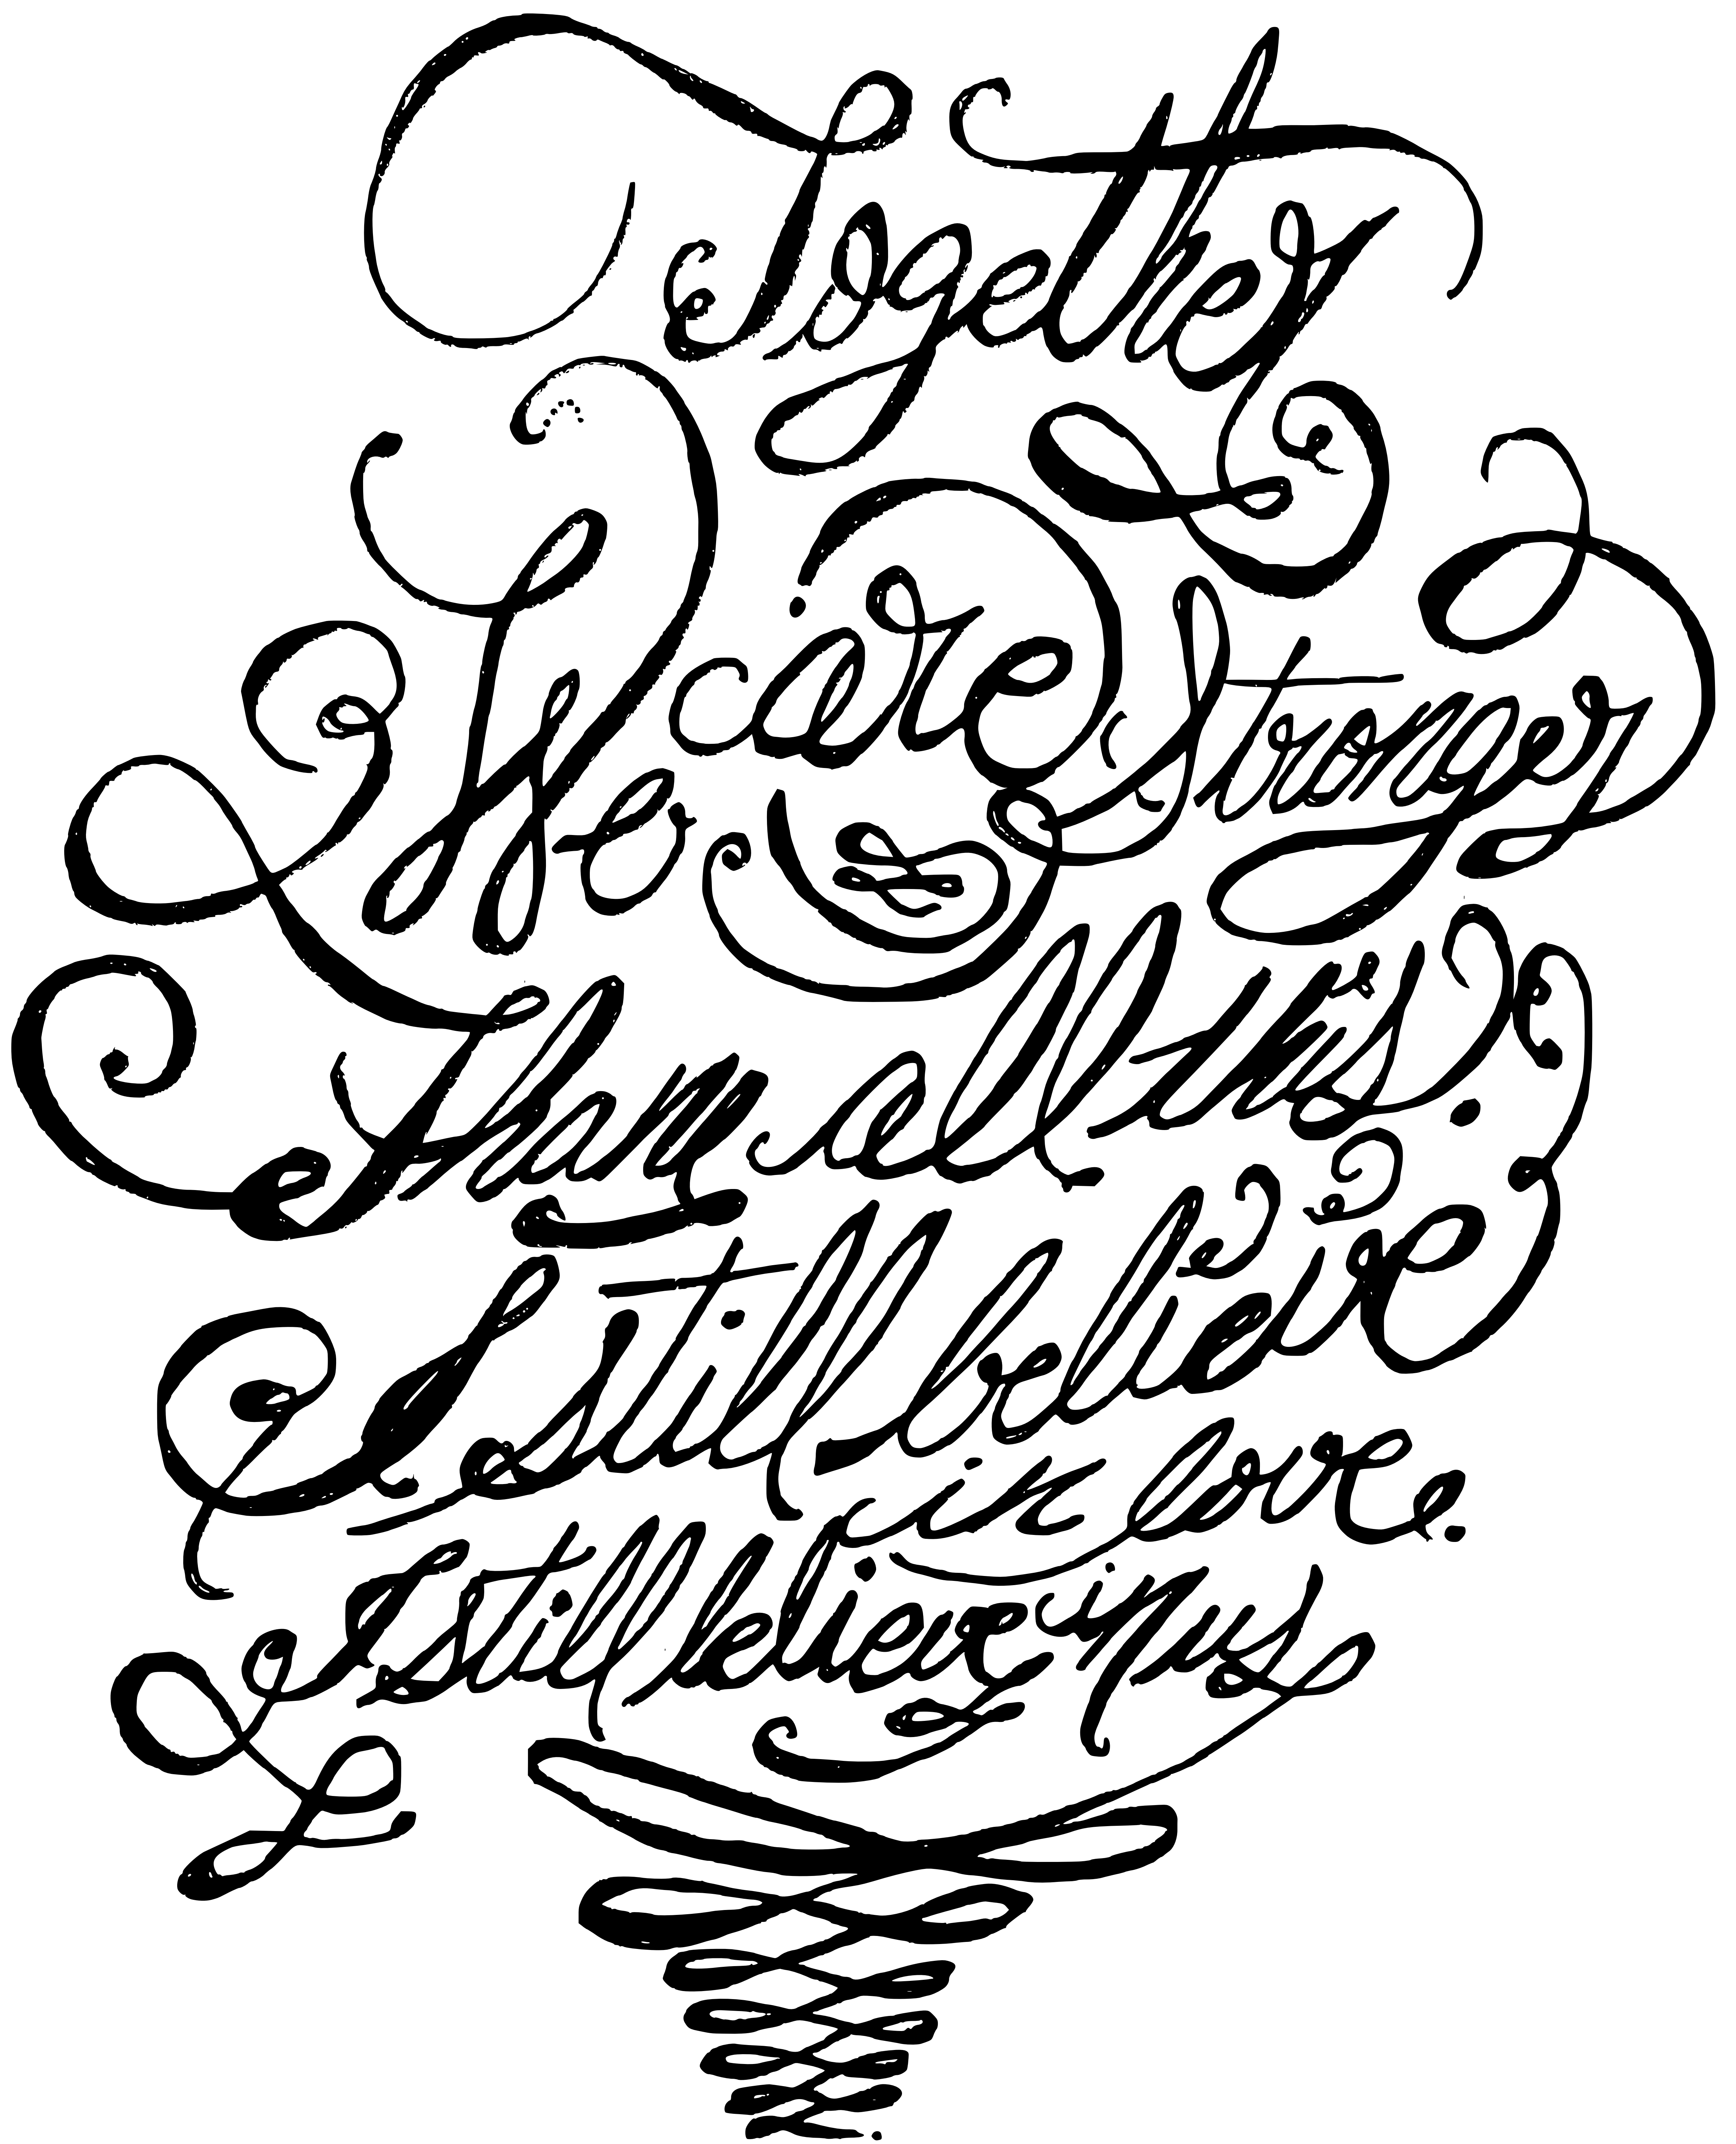 Together
You are stronger
Then all this.
I still believe
in love.
I still believe in you